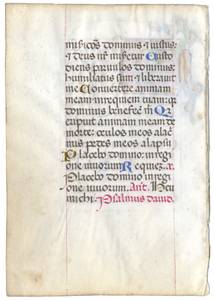 misericors dominus et iustus
et deus nr miseretur Custo
diens parvulos dominus
humiliatus sum et liberavit
me Convertere animam
meam in requiem tuam: q
dominus benefec m Qr
eripuit animam meam de
morte: oculos meos a lac
mis pedes meos a lapsu
Placebo domino: in regi
one vivorum Requiez. a.
Placebo domino in regi
one vivorum. Ant. Heu
michi. Psalmus david.